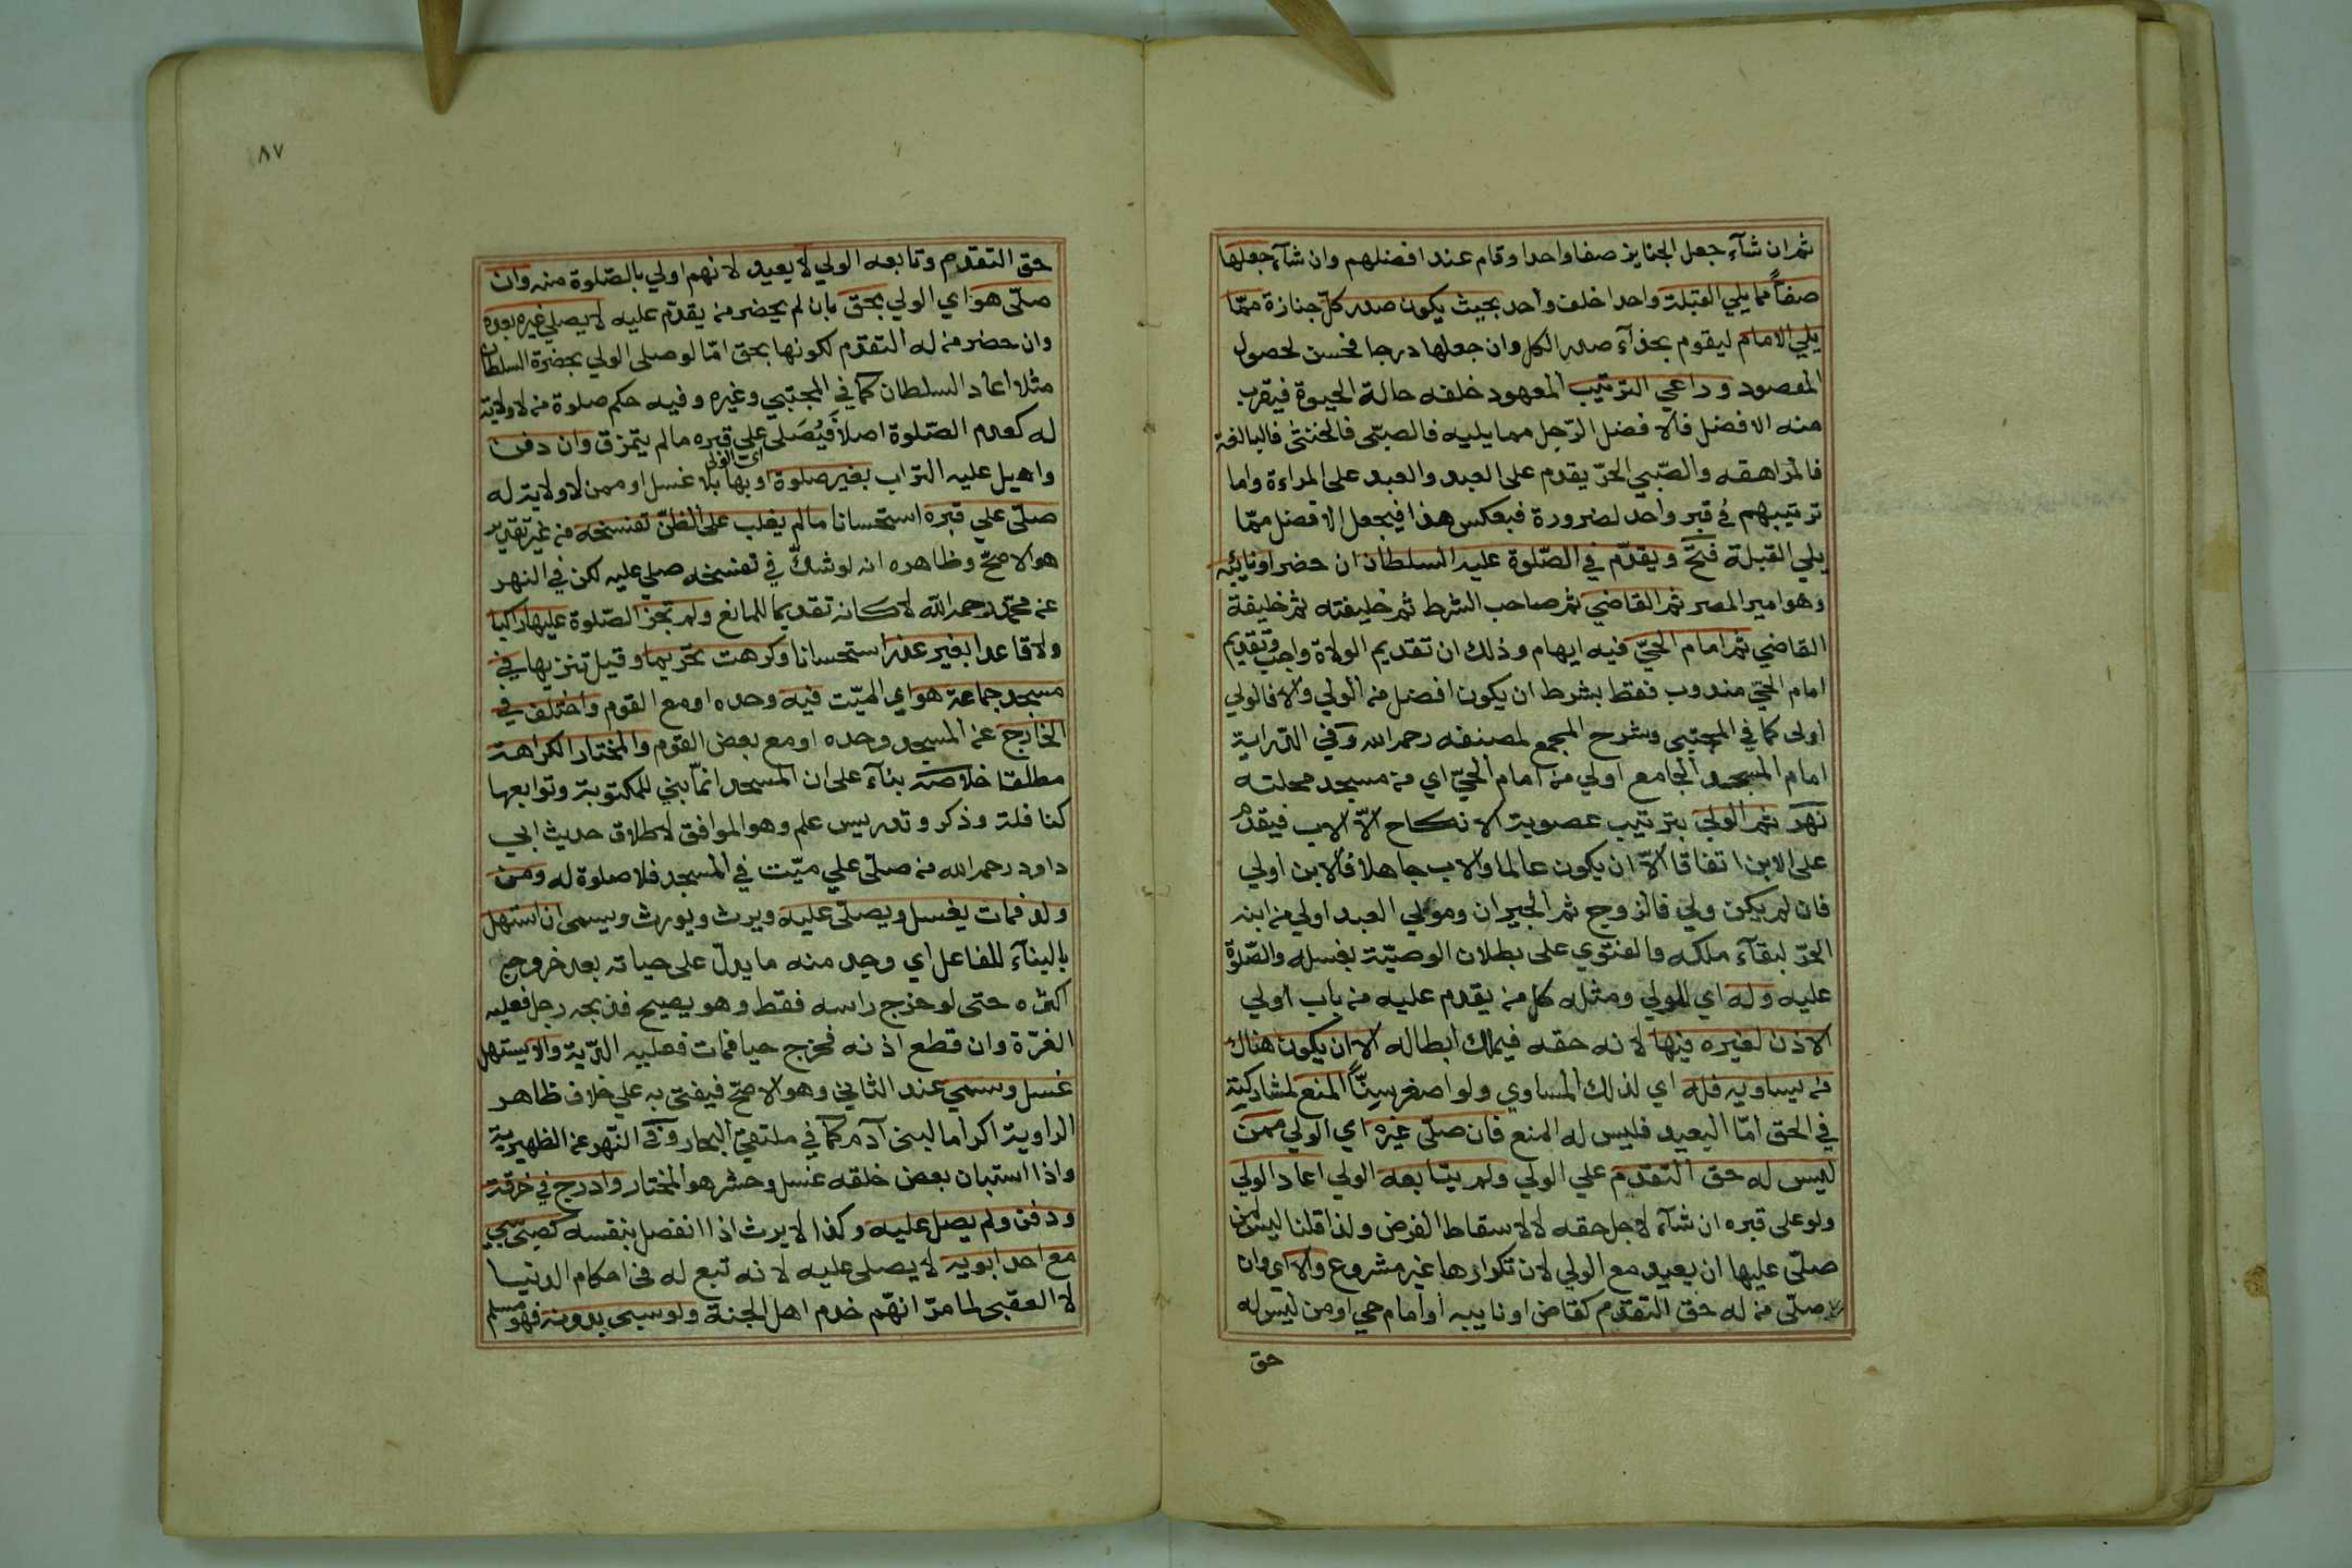 ثم ان شآء جعل الجنايز صفا واحدا وقام عند افضلهم وان شآء جعلها
صفاً مما يلي القبلة واحدا خلف واحد بحيث يكون صدر كلّ جنازة ممّا
يلي الامام ليقوم بحذآء صدر الكل وان جعلها درجا فحسن لحصول
المقصود وراعي الترتيب المعهود خلفه حالة الحيوة فيقرب
منه الافضل فالافضل الرّجل مما يليه فالصبّى فالخنثى فالبالغة
فالمراهقه والصّبي الحرّ يقدم على العبد والعبد على المراءة واما
ترتيبهم في قبر واحد لضرورة فبعكس هذا فيجعل الافضل ممّا
يلي القبلة فتح ويقدّم في الصّلوة عليه السلطان ان حضر او نائبه
وهو امير المصر ثم القاضي ثم صاحب الشرط ثم خليفته ثم خليفة
القاضي ثم امام الحيّ فيه ايهام وذلك ان تقديم الولاة واجب وتقديم
امام الحيّ مندوب فقط بشرط ان يكون افضل من الولي والا فالولي
اولى كما في المجتبى وشرح المجمع لمصنفه رحمه الله وفي الدّراية
امام المسجد الجامع اولي من امام الحيّ اي من مسجد محلته
نهر ثم الولي بترتيب عصوبة الانكاح الّا الاب فيقدم
على الابن اتفاقا الّا ان يكون عالما والاب جاهلا فالابن اولي
فان لم يكن ولي فالزوج ثم الجيران ومولي العبد اولي من ابنه
الحرّ لبقآء ملكه والفتوي على بطلان الوصيّة بغسله والصّلوة
عليه وله اي للولي ومثله كل من يقدم عليه من باب اولي
الاذن لغيره فيها لانه حقه فيملك ابطاله الا ان يكون هناك
من يساويه فله اي لذلك المساوي ولو اصغر سنّاً المنع لمشاركته
في الحق امّا البعيد فليس له المنع فان صلّى غيره اي الولي ممن
ليس له حق التقدم علي الولي ولم يتابعه الولي اعاد الولي
ولو على قبره ان شآء لاجل حقه لا لاسقاط الفرض ولذا قلنا ليس لمن
صلّى عليها ان يعيد مع الولي لان تكرارها غير مشروع والا اي وان
صلّى من له حق التقدم كقاض او نايبه او امام حي او من ليس له
حق
٨٧
حق التقدم وتابعه الولي لا يعيد لانهم اولي بالصّلوة منه وان
صلّى هو اي الولي بحق بان لم يحضر من يقدّم عليه لا يصلي غيره بعده
وان حضر من له التقدم لكونها بحق امّا لو صلى الولي بحضرة السلطان
مثلا اعاد السلطان كما في المجتبي وغيره وفيه حكم صلوة من لا ولاية
له كعدم الصّلوة اصلاً فيُصَلى علي قبره ما لم يتمزق وان دفن
واهيل عليه التراب بغير صلوة او بها بلا غسل او ممن لا ولاية له
صلّى علي قبره استحسانا ما لم يغلب على الظنّ تفسخه من غير تقدير
هو الاصحّ وظاهره انه لو شكّ في تفسخه صلي عليه لكن في النهر
عن محمّد رحمه الله لا كانه تقديما للمانع ولم تجز الصّلوة عليها راكبا
ولا قاعدا بغير عذر استحسانا وكرهت تحريما وقيل تنزيها في
مسجد جماعة هو اي الميّت فيه وحده او مع القوم واختلف في
الخارج عن المسجد وحده او مع بعض القوم والمختار الكراهة
مطلقا خلاصة بنآء على ان المسجد انمّا بني للمكتوبة وتوابعها
كنافلة وذكر وتدريس علم وهو الموافق لاطلاق حديث ابي
داود رحمه الله من صلّى علي ميّت في المسجد فلا صلوة له ومن
ولد فمات يغسل ويصلّى عليه ويرث ويورث ويسمى ان استهل
بالبنآء للفاعل اي وجد منه ما يدلّ على حياته بعد خروج
اكثره حتى لو خرج راسه فقط وهو يصيح فذبحه رجل فعليه
الغرّة وان قطع اذنه فخرج حيا فمات فعليه الدّية والا يستهل
غسل وسمي عند الثاني وهو الاصحّ فيفتى به علي خلاف ظاهر
الراوية اكراما لبنى آدم كما في ملتقي البحار وفي النّهر عن الظهيرية
واذا استبان بعض خلقه غسل وحشر هو المختار وادرج في خرقة
ودفن ولم يصل عليه وكذا لا يرث اذا انفصل بنفسه كصبّى سبي
مع احد ابويه لا يصلى عليه لانه تبع له فى احكام الدنيا
لا العقبى لما مرّ انهّم خدم اهل الجنة ولو سبى بدونه فهو مسلم